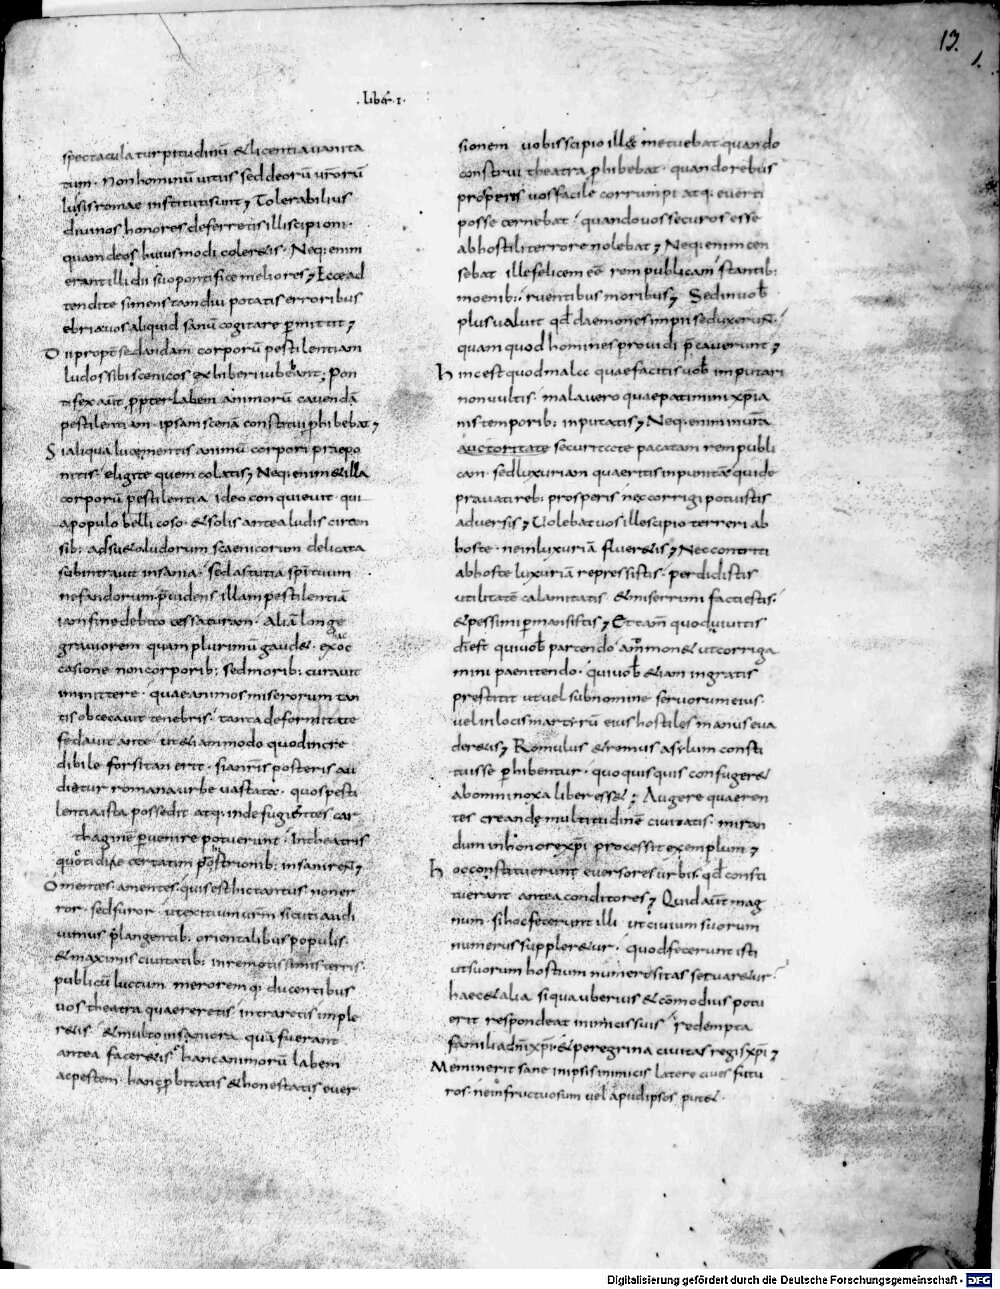 13.
1.
. liber . 1 .
spectacula turpitudinū & licentia uanita
tum · Non hominū uitiis sed deorū urorū
lusis romae institutis sunt; Tolerabilius
diuinos honores deferretis illi scipioni ·
quam deos huiusmodi coleretis · Neq; enim
erant illi dii suo pontifice meliores; Ecce ad
tendite si mens tam diu potatis erroribus
ebria uos aliquid sanū cogitare permittit;
Dii propt sedandam corporū pestilentiam
ludos sibi scenicos exhiberi iubebant; Pon
tifex aut ppter labem animorū cauendā
pestilentiam · ipsam scenā constitui phibebat;
Si aliqua luce mentis animū corpori praepo
nitis · eligite quem colatis; Neq; enim & illa
corporū pestilentia ideo conquieuit · qui
a populo bellicoso · & solis antea ludis circen
sib; adsueto ludorum scaenicorum delicata
subintrauit insania · sed astutia spirituum
nefandorum puidens illam pestilentiā
iam fine debito cessaturam · Aliā longe
grauiorem qua plurimū gaud& · ex hac oc
casione non corporib; sed morib; curauit
inmittere · quae animos miserorum tan
tis obcecauit tenebris · tanta deformitate
fedauit ante · ut etiam modo quod incre
dibile forsitan erit · si a nris posteris au
dietur romana urbe uastata · quos pesti
lentia ista possedit atq; inde fugientes car
thagine peruenire potuerunt · In theatris
quotidiae certatim p histrionib; insanirent;
O mentes · amentes · quis est hic tantus non er
ror · sed furor · ut exitium urm sicut audi
uimus plangentib; orientalibus populis ·
& maximis ciuitatib; in remotissimis terris
publicū luctum meroremq; ducentibus
uos theatra quaereretis · intraretis imple
retis · & multo insaniora quā fuerant
antea faceretis · hanc animorū labem
ac pestem · hanc pbitatis & honestatis euer
sionem uobis scipio ille metuebat quando
construi theatra phibebat · quando rebus
prosperis uos facile corrumpi atq; euerti
posse cernebat · quando uos securos esse
ab hostili terrore nolebat; Neq; enim cen
sebat ille felicem eē rem publicam stantib;
moenib; ruentibus moribus; Sed in uob
plus ualuit qd daemones impii seduxerunt ·
quam quod homines prouidi pcauerunt;
hinc est quod mala quae facitis uob imputari
non uultis · mala uero quae patimini xpia
nis temporib; inputatis; Neq; enim in ura
auctoritate securitate pacatam rem publi
cam · sed luxuriam quaeritis inpunitam qui de
prauati reb; prosperis nec corrigi potuistis
aduersis; Volebat uos ille scipio terreri ab
hoste · ne in luxuriā flueretis; Nec contriti
ab hoste luxuriā repressistis · perdidistis
utilitatē calamitatis & miserrimi facti estis ·
& pessimi permansistis; Et tam quod uiuitis
di est qui uob parcendo ammonet ut corriga
mini paenitendo · qui uob etiam ingratis
prestitit ut uel sub nomine seruorum eius ·
uel in locis martyrū eius hostiles manus eua
deretis; Romulus & remus asylum consti
tuisse phibentur · quo quisquis confugeret
ab omni noxa liber esset; Augere quaeren
tes creande multitudinē ciuitatis · miran
dum in honore xpi processit exemplum;
hoc constituerunt euersores urbis · qd consti
tuerant antea conditores; Quid aut mag
num · si hoc fecerunt illi ut ciuium suorum
numerus suppleretur · quod fecerunt isti
ut suorum hostium numerositas seruaretur ·
haec & alia si qua uberius & commodius potu
erit respondeat inimicis suis redempta
familia dni xpi · & peregrina ciuitas regis xpi;
Meminerit sane in ipsis inimicis latere ciues futu
ros · ne infructuosum uel apud ipsos putet ·
Digitalisierung gefördert durch die Deutsche Forschungsgemeinschaft - DFG